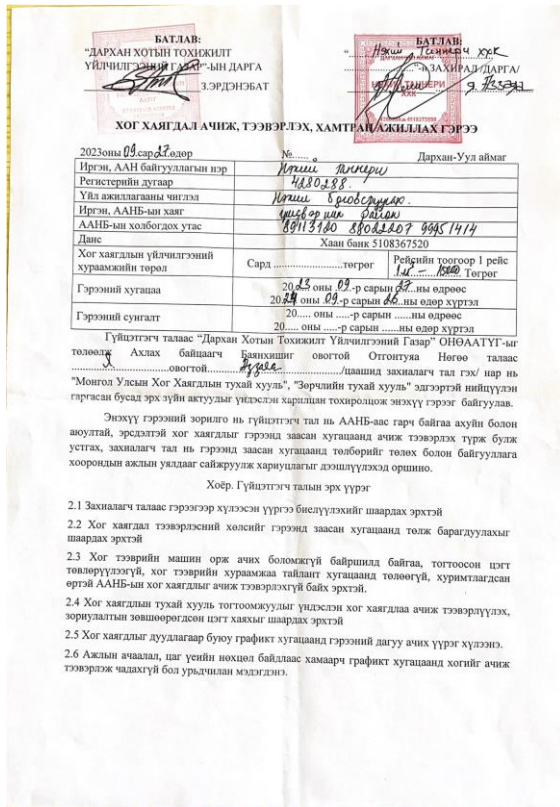 БАТЛАВ:
"ДАРХАН ХОТЫН ТОХИЖИЛТ
ҮЙЛЧИЛГЭЭНИЙ ГАЗАР"-ЫН ДАРГА
З.ЭРДЭНЭБАТ
БАТЛАВ:
" Нэхий Таннери ХХК
"-н ЗАХИРАЛ /ДАРГА/
ХОГ ХАЯГДАЛ АЧИЖ, ТЭЭВЭРЛЭХ, ХАМТРАН АЖИЛЛАХ ГЭРЭЭ
2023оны 09.сар 27.өдөр №...... Дархан-Уул аймаг
Иргэн, ААН байгууллагын нэр Нэхий таннери
Регистерийн дугаар 4280288.
Үйл ажиллагааны чиглэл Нэхий боловсруулах.
Иргэн, ААНБ-ын хаяг үйлдвэрийн район
ААНБ-ын холбогдох утас 89113120 88022207 99951414
Данс Хаан банк 5108367520
Хог хаягдлын үйлчилгээний хураамжийн төрөл Сард .....................төгрөг Рейсийн тоогоор 1 рейс
Төгрөг
Гэрээний хугацаа 2023 оны .09.-р сарын 27...ны өдрөөс
2024 оны .09.-р сарын 26...ны өдөр хүртэл
Гэрээний сунгалт 20..... оны .....-р сарын ......ны өдрөөс
20..... оны .....-р сарын ......ны өдөр хүртэл
Гүйцэтгэгч талаас "Дархан Хотын Тохижилт Үйлчилгээний Газар" ОНӨААТҮГ-ыг
төлөөлж Ахлах байцаагч Баянхишиг овогтой Отгонтуяа Нөгөө талаас
овогтой /цаашид захиалагч тал гэх/ нар нь
"Монгол Улсын Хог Хаягдлын тухай хууль", "Зөрчлийн тухай хууль" эдгээртэй нийцүүлэн
гаргасан бусад эрх зүйн актуудыг үндэслэн харилцан тохиролцож энэхүү гэрээг байгуулав.
Энэхүү гэрээний зорилго нь гүйцэтгэгч тал нь ААНБ-аас гарч байгаа ахуйн болон
аюултай, эрсдэлтэй хог хаягдлыг гэрээнд заасан хугацаанд ачиж тээвэрлэх түрж булж
устгах, захиалагч тал нь гэрээнд заасан хугацаанд төлбөрийг төлөх болон байгууллага
хоорондын ажлын уялдааг сайжруулж хариуцлагыг дээшлүүлэхэд оршино.
Хоёр. Гүйцэтгэгч талын эрх үүрэг
2.1 Захиалагч талаас гэрээгээр хүлээсэн үүргээ биелүүлэхийг шаардах эрхтэй
2.2 Хог хаягдал тээвэрлэсний хөлсийг гэрээнд заасан хугацаанд төлж барагдуулахыг
шаардах эрхтэй
2.3 Хог тээврийн машин орж ачих боломжгүй байршилд байгаа, тогтоосон цэгт
төвлөрүүлээгүй, хог тээврийн хураамжаа тайлант хугацаанд төлөөгүй, хуримтлагдсан
өртэй ААНБ-ын хог хаягдлыг ачиж тээвэрлэхгүй байх эрхтэй.
2.4 Хог хаягдлын тухай хууль тогтоомжуудыг үндэслэн хог хаягдлаа ачиж тээвэрлүүлэх,
зориулалтын зөвшөөрөгдсөн цэгт хаяхыг шаардах эрхтэй
2.5 Хог хаягдлыг дуудлагаар буюу графикт хугацаанд гэрээний дагуу ачих үүрэг хүлээнэ.
2.6 Ажлын ачаалал, цаг үеийн нөхцөл байдлаас хамаарч графикт хугацаанд хогийг ачиж
тээвэрлэж чадахгүй бол урьдчилан мэдэгдэнэ.